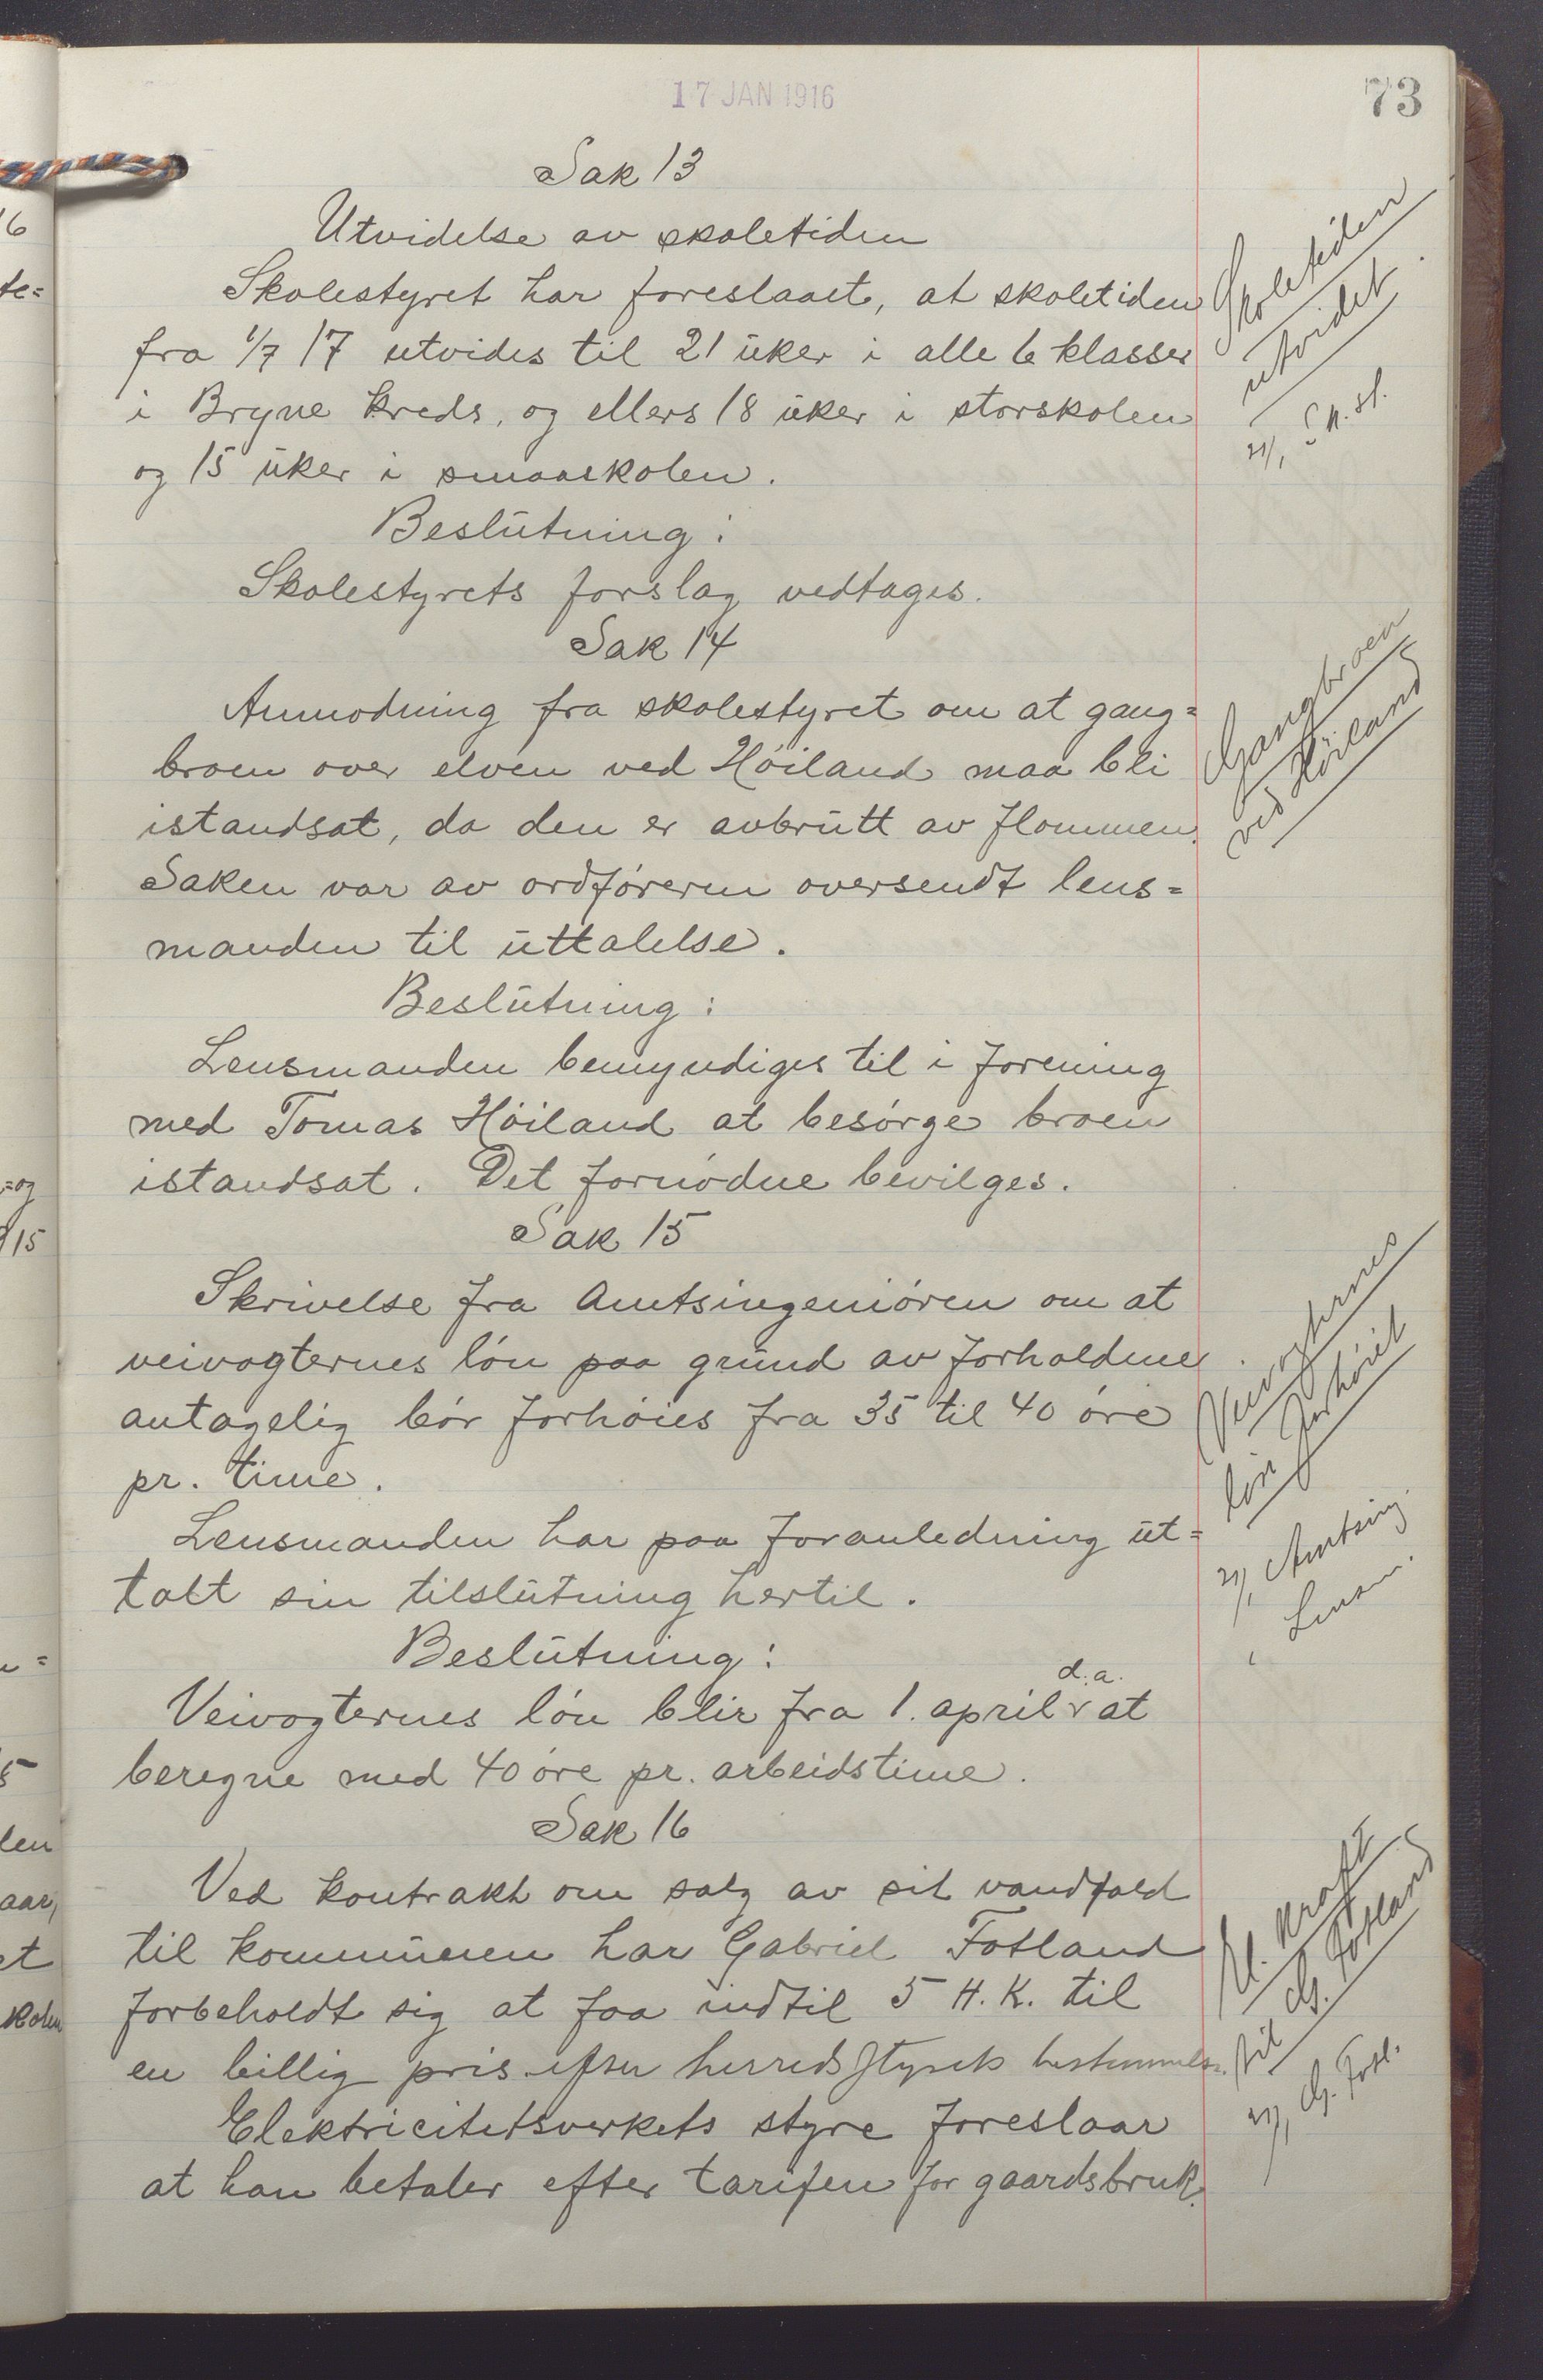 17 JAN 1916
73
Sak 13
Utvidelse av skoletiden
Skolestyret har foreslaaet, at skoletiden
fra 1/7 17 utvides til 21 uker i alle 6 klasser
i Bryne kreds, og ellers 18 uker i storskolen
og 15 uker i smaaskolen.
Beslutning:
Skolestyrets forslag vedtages.
Skoletiden
utvidet
21/1 Sk.st.
Sak 14
Anmodning fra skolestyret om at gang=
broen over elven ved Höiland maa bli
istandsat, da den er avbrutt av flommen.
Saken var av ordföreren oversendt lens=
manden til uttalelse.
Beslutning:
Lensmanden bemyndiges til i forening
med Tomas Höiland at besörge broen
istandsat. Det fornödne bevilges.
Gangbroen
ved Höiland
Sak 15
Skrivelse fra Amtsingeniören om at
veivogternes lön paa grund av forholdene
antagelig bör forhöies fra 35 til 40 öre
pr. time.
Lensmanden har paa foranledning ut=
talt sin tilslutning hertil.
Beslutning:
Veivogternes lön blir fra 1. april d.a. at
beregne med 40 öre pr. arbeidstime.
Veivogternes
lön forhöiet
21/1 Amtsing.
" Lensm.
Sak 16
Ved kontrakt om salg av sit vandfald
til kommunen har Gabriel Fotland
forbeholdt sig at faa indtil 5 H.K. til
en billig pris efter herredsstyrets bestemmelse.
Elektricitetsverkets styre foreslaar
at han betaler efter tariffen for gaardsbruk.
El. kraft
til G. Fotland
21/1 G. Fotl.